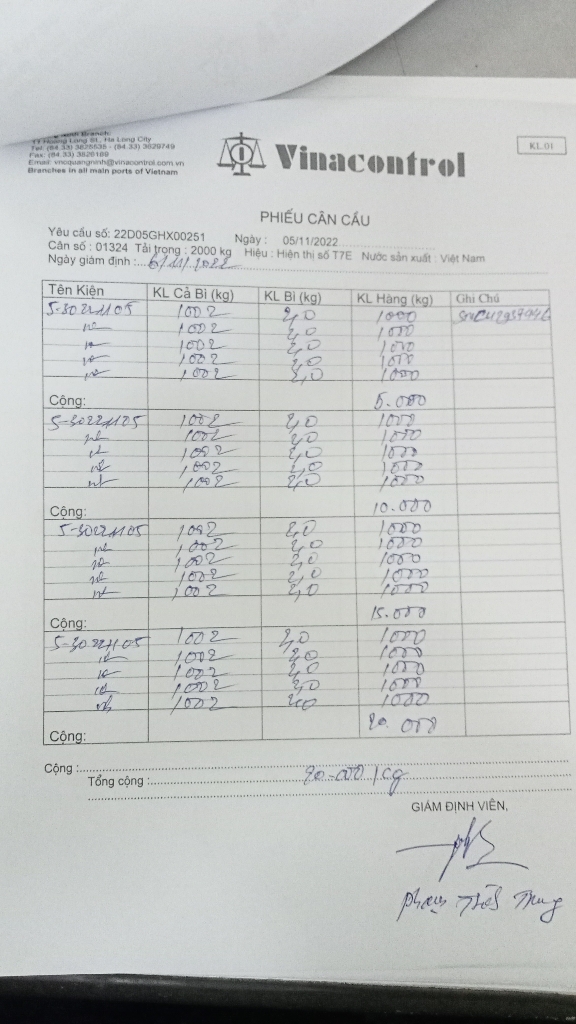 Hoàng Long St., Ha Long City
Tel: (84.33) 3825535 - (84.33) 3829749
Fax: (84.33) 3826169
Email: vncquangninh@vinacontrol.com.vn
Branches in all main ports of Vietnam
Vinacontrol
KL.01
PHIẾU CÂN CẨU
Yêu cầu số: 22D05GHX00251 Ngày : 05/11/2022
Cân số : 01324 Tải trọng : 2000 kg Hiệu : Hiện thị số T7E Nước sản xuất : Việt Nam
Ngày giám định :....6/11/2022
Tên Kiện KL Cả Bì (kg) KL Bì (kg) KL Hàng (kg) Ghi Chú
5-30221105 1002 2,0 1000
nt 1002 2,0 1000
nt 1002 2,0 1000
nt 1002 2,0 1000
nt 1002 2,0 1000
Cộng: 5.000
5-30221105 1002 2,0 1000
nt 1002 2,0 1000
nt 1002 2,0 1000
nt 1002 2,0 1000
nt 1002 2,0 1000
Cộng: 10.000
5-30221105 1002 2,0 1000
nt 1002 2,0 1000
nt 1002 2,0 1000
nt 1002 2,0 1000
nt 1002 2,0 1000
Cộng: 15.000
5-30221105 1002 2,0 1000
nt 1002 2,0 1000
nt 1002 2,0 1000
nt 1002 2,0 1000
nt 1002 2,0 1000
Cộng: 20.000
Cộng :
Tổng cộng : 20.000 kg
GIÁM ĐỊNH VIÊN,
Phạm Tiến Trung